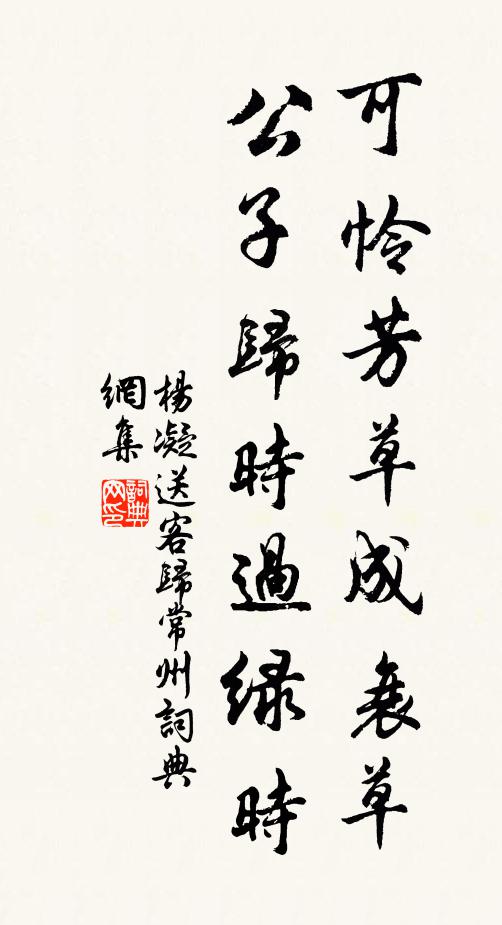 可憐芳草成衰草
公子歸時過綠時
楊凝送客歸常州詞典
網集
詞典網印